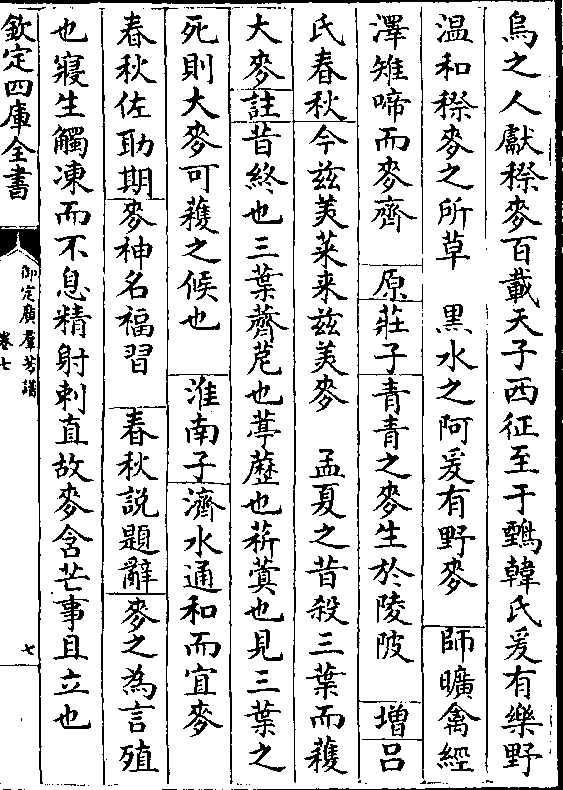 烏之人獻穄麥百載天子西征至于鸐韓氏爰有樂野
温和穄麥之所草　黑水之阿爰有野麥　師曠禽經
澤雉啼而麥齊　原莊子青青之麥生於陵陂　增吕
氏春秋今兹美菜来兹美麥　孟夏之昔殺三葉而穫
大麥註昔終也三葉薺芪也葶藶也菥蓂也見三葉之
死則大麥可穫之候也　淮南子濟水通和而宜麥
春秋佐助期麥神名福習　春秋說題辭麥之為言殖
也寢生觸凍而不息精射刺直故麥含芒事且立也
欽定四庫全書
御定廣羣芳譜
卷七
七